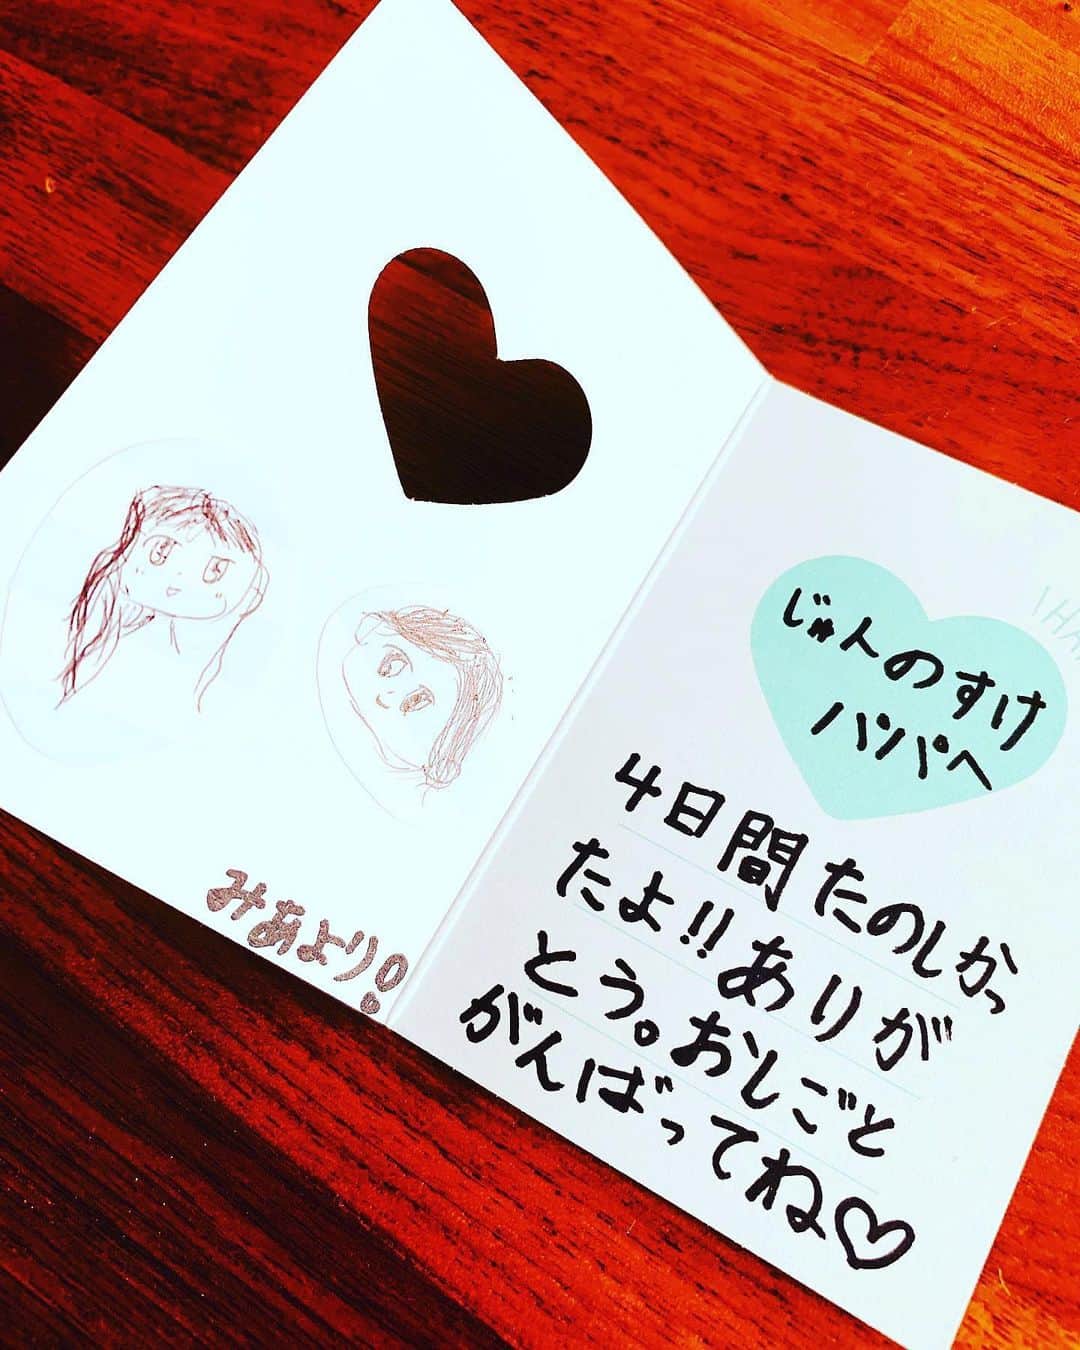 みあより!
じゅんのすけ
パパへ
4日間たのしかっ
たよ!!ありが
とう。おしごと
がんばってね♡